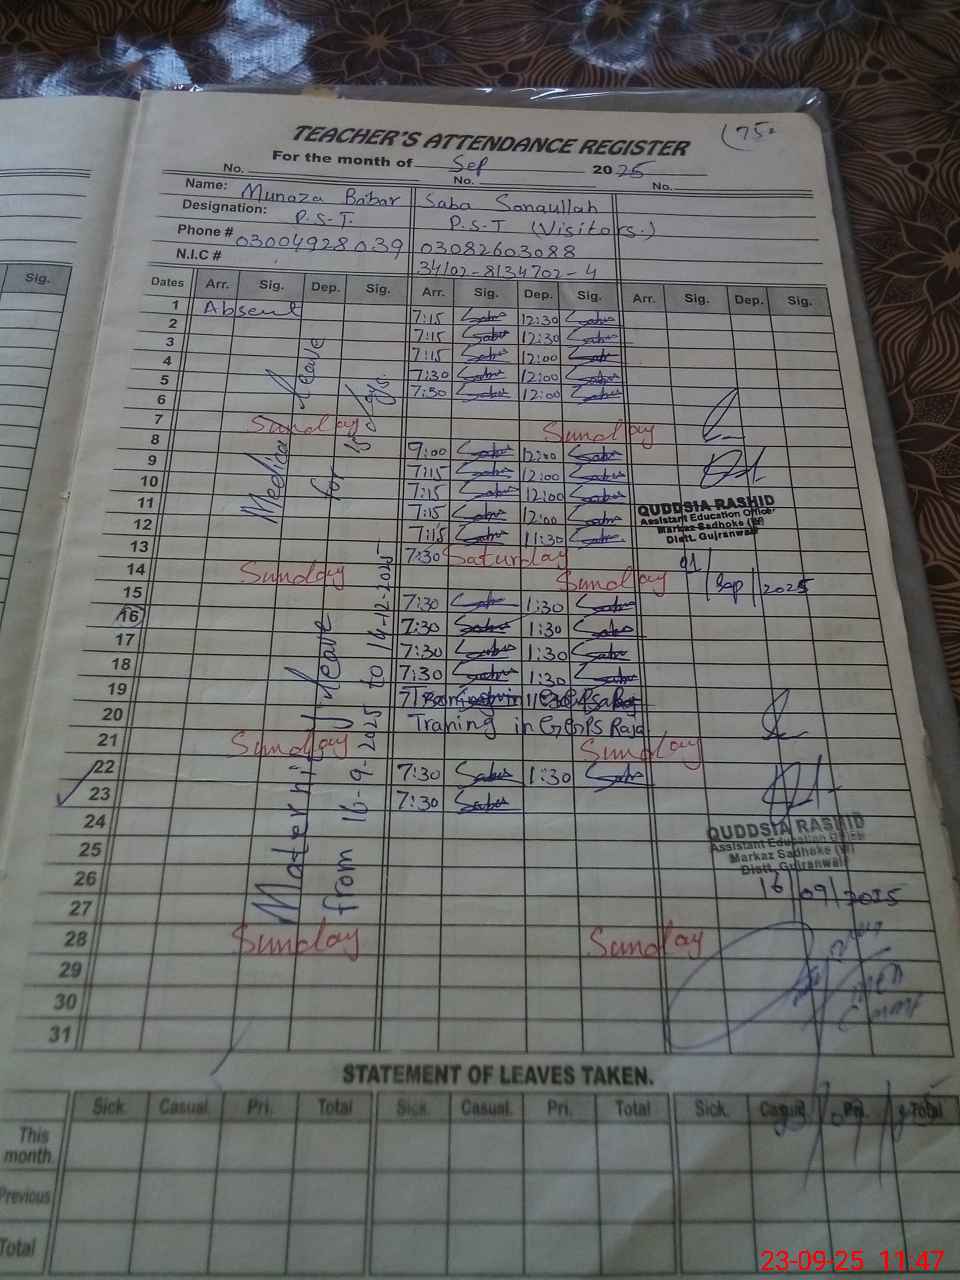 (75)
TEACHER'S ATTENDANCE REGISTER
For the month of Sep 2025
No. No. No.
Name: Munaza Babar Saba Sanaullah
Designation: P.S.T. P.S.T (Visitors.)
Phone # 03004928039 03082603088
N.I.C # 34102-8134702-4
Sig.
Dates Arr. Sig. Dep. Sig. Arr. Sig. Dep. Sig. Arr. Sig. Dep. Sig.
1 Absent 7:15 Saba 12:30 Saba
2 7:15 Saba 12:30 Saba
3 7:15 Saba 12:00 Saba
4 7:30 Saba 12:00 Saba
5 7:30 Saba 12:00 Saba
6
7 Sunday Sunday
8 9:00 Saba 12:00 Saba
9 7:15 Saba 12:00 Saba
10 7:15 Saba 12:00 Saba
11 7:15 Saba 12:00 Saba
12 7:15 Saba 11:30 Saba
13 7:30 Saturday
14 Sunday Sunday
15 7:30 Saba 1:30 Saba
16 7:30 Saba 1:30 Saba
17 7:30 Saba 1:30 Saba
18 7:30 Saba 1:30 Saba
19
20 Traning in GGPS Raja
21 Sunday Sunday
22 7:30 Saba 1:30 Saba
23 7:30 Saba
24
25
26
27
28 Sunday Sunday
29
30
31
Medical leave
for 15 days.
Maternity leave
from 16-9-2025 to 14-12-2025
QUDDSIA RASHID
Assistant Education Officer
Markaz Sadhoke (W)
Distt. Gujranwala
Sep 2025
QUDDSIA RASHID
Assistant Education Office
Markaz Sadhoke (W)
Distt. Gujranwala
16/09/2025
STATEMENT OF LEAVES TAKEN.
Sick. Casual. Pri. Total Sick. Casual. Pri. Total Sick. Casual. Pri. Total
This month.
Previous
Total
23-09-25 11:47